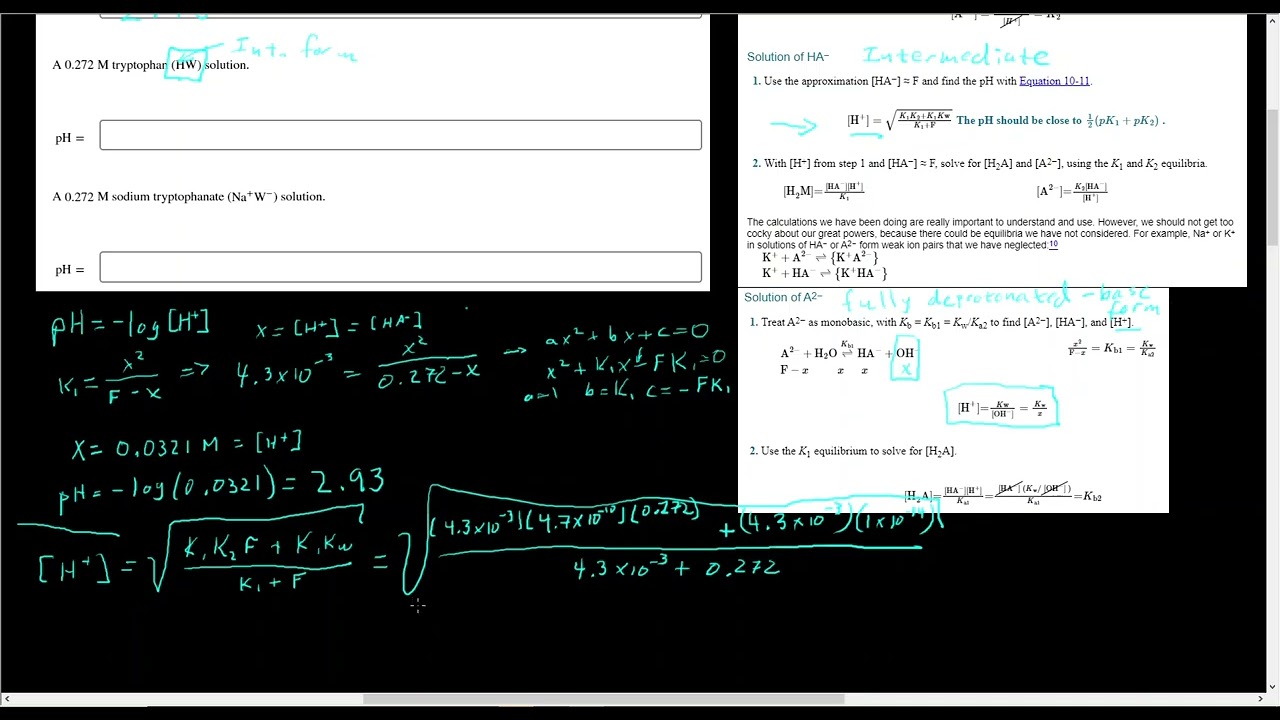 A 0.272 M tryptophan (HW) solution.
Int. form
pH =
A 0.272 M sodium tryptophanate (Na⁺W⁻) solution.
pH =
Solution of HA⁻ Intermediate
1. Use the approximation [HA⁻] ≈ F and find the pH with Equation 10-11.
[H⁺] = √(K₁K₂+K₁Kw / K₁+F) The pH should be close to ½(pK₁ + pK₂) .
2. With [H⁺] from step 1 and [HA⁻] ≈ F, solve for [H₂A] and [A²⁻], using the K₁ and K₂ equilibria.
[H₂M]=[HA⁻][H⁺]/K₁ [A²⁻]=K₂[HA⁻]/[H⁺]
The calculations we have been doing are really important to understand and use. However, we should not get too
cocky about our great powers, because there could be equilibria we have not considered. For example, Na⁺ or K⁺
in solutions of HA⁻ or A²⁻ form weak ion pairs that we have neglected:10
K⁺ + A²⁻ ⇌ {K⁺A²⁻}
K⁺ + HA⁻ ⇌ {K⁺HA⁻}
Solution of A²⁻ fully deprotonated - base form
1. Treat A²⁻ as monobasic, with Kb = Kb1 = Kw/Ka2 to find [A²⁻], [HA⁻], and [H⁺].
A²⁻ + H₂O ⇌ HA⁻ + OH⁻ Kb1 x²/F−x = Kb1 = Kw/Ka2
F − x x x x
[H⁺]=Kw/[OH⁻] = Kw/x
2. Use the K₁ equilibrium to solve for [H₂A].
[H₂A]=[HA⁻][H⁺]/Ka1=[HA⁻](Kw/[OH⁻])/Ka1=Kb2
pH = -log[H⁺] x = [H⁺] = [HA⁻]
K₁ = x²/F - x => 4.3x10⁻³ = x²/0.272-x → ax² + bx + c = 0
x² + K₁x - FK₁ = 0
a=1 b=K₁ c=-FK₁
x = 0.0321 M = [H⁺]
pH = -log(0.0321) = 2.93
[H⁺] = √(K₁K₂F + K₁Kw / K₁ + F) = √((4.3x10⁻³)(4.7x10⁻¹⁰)(0.272) + (4.3x10⁻³)(1x10⁻¹⁴) / 4.3x10⁻³ + 0.272)